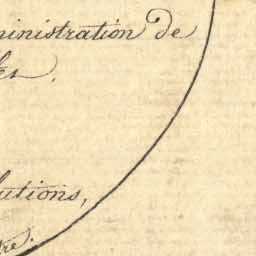 ministration de
tes.
lutions,
tre.